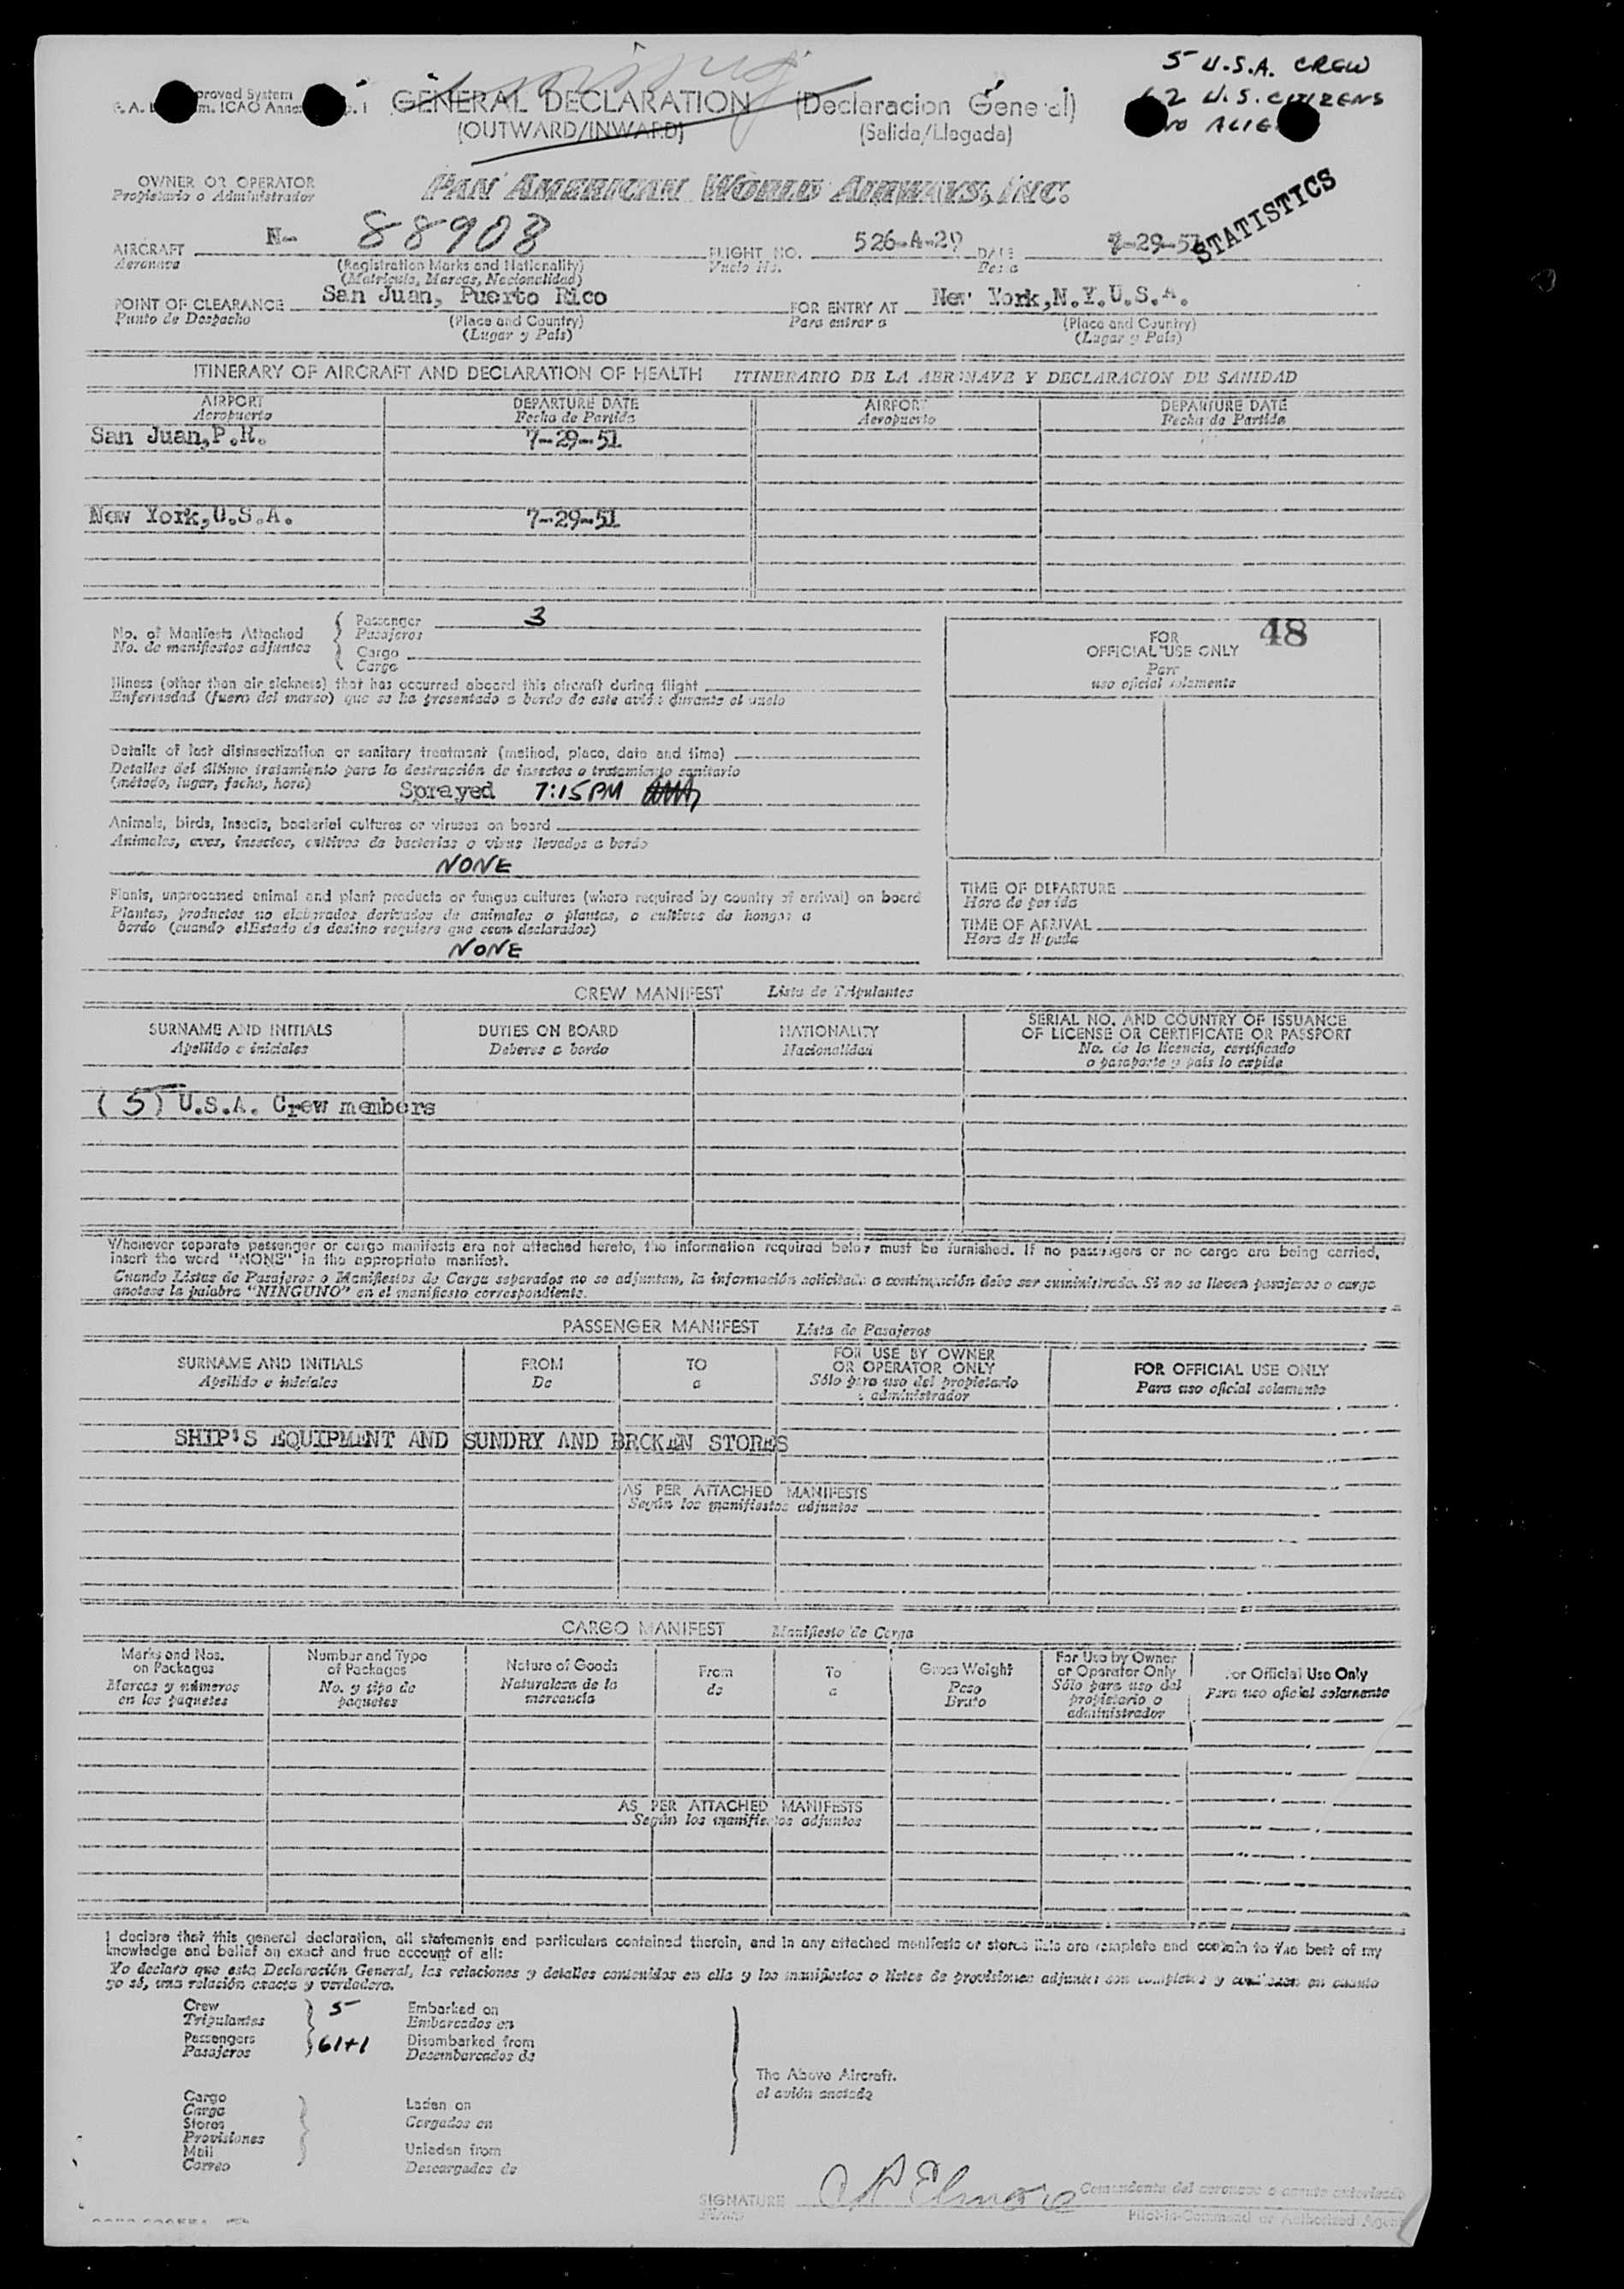 5 U.S.A. CREW
62 U.S. CITIZENS
NO ALIE
proved System
ICAO Anne
GENERAL DECLARATION (Declaracion General)
(OUTWARD/INWARD) (Salida/Llegada)
OWNER OR OPERATOR
Propietario o Administrador
PAN AMERICAN WORLD AIRWAYS, INC.
STATISTICS
AIRCRAFT N- 88908 FLIGHT NO. 526-A-29 DATE 7-29-51
Aeronave (Registration Marks and Nationality) Vuelo No. Fecha
(Matricula, Marcas, Nacionalidad)
POINT OF CLEARANCE San Juan, Puerto Rico FOR ENTRY AT New York,N.Y.U.S.A.
Punto de Despacho (Place and Country) Para entrar a (Place and Country)
(Lugar y País) (Lugar y País)
ITINERARY OF AIRCRAFT AND DECLARATION OF HEALTH ITINERARIO DE LA AERONAVE Y DECLARACION DE SANIDAD
AIRPORT DEPARTURE DATE AIRPORT DEPARTURE DATE
Aeropuerto Fecha de Partida Aeropuerto Fecha de Partida
San Juan,P.R. 7-29-51
New York,U.S.A. 7-29-51
No. of Manifests Attached
No. de manifiestos adjuntos
Passenger 3
Pasajeros
Cargo
Cargo
FOR 48
OFFICIAL USE ONLY
Para
uso oficial solamente
Illness (other than air sickness) that has occurred aboard this aircraft during flight
Enfermedad (fuera del mareo) que se ha presentado a bordo de este avión durante el vuelo
Details of last disinsectization or sanitary treatment (method, place, date and time)
Detalles del último tratamiento para la destrucción de insectos o tratamiento sanitario
(método, lugar, fecha, hora) Sprayed 7:15 PM
Animals, birds, insects, bacterial cultures or viruses on board
Animales, aves, insectos, cultivos de bacterias o virus llevados a bordo
NONE
Plants, unprocessed animal and plant products or fungus cultures (where required by country of arrival) on board
Plantas, productos no elaborados derivados de animales o plantas, o cultivos de hongos a
bordo (cuando elEstado de destino requiere que sean declarados)
NONE
TIME OF DEPARTURE
Hora de partida
TIME OF ARRIVAL
Hora de llegada
CREW MANIFEST Lista de Tripulantes
SURNAME AND INITIALS DUTIES ON BOARD NATIONALITY SERIAL NO. AND COUNTRY OF ISSUANCE
OF LICENSE OR CERTIFICATE OR PASSPORT
Apellido e iniciales Deberes a bordo Nacionalidad No. de la licencia, certificado
o pasaporte y país lo expide
(5) U.S.A. Crew members
Whenever separate passenger or cargo manifests are not attached hereto, the information required below must be furnished. If no passengers or no cargo are being carried,
insert the word "NONE" in the appropriate manifest.
Cuando Listas de Pasajeros o Manifiestos de Carga separados no se adjuntan, la información solicitada a continuación debe ser suministrada. Si no se llevan pasajeros o carga
anotese la palabra "NINGUNO" en el manifiesto correspondiente.
PASSENGER MANIFEST Lista de Pasajeros
SURNAME AND INITIALS FROM TO FOR USE BY OWNER
OR OPERATOR ONLY FOR OFFICIAL USE ONLY
Apellido e iniciales De a Sólo para uso del propietario
o administrador Para uso oficial solamente
SHIP'S EQUIPMENT AND SUNDRY AND BROKEN STORES
AS PER ATTACHED MANIFESTS
Según los manifiestos adjuntos
CARGO MANIFEST Manifiesto de Carga
Marks and Nos.
on Packages
Marcas y números
en los paquetes
Number and Type
of Packages
No. y tipo de
paquetes
Nature of Goods
Naturaleza de la
mercancía
From
de
To
a
Gross Weight
Peso
Bruto
For Use by Owner
or Operator Only
Sólo para uso del
propietario o
administrador
For Official Use Only
Para uso oficial solamente
AS PER ATTACHED MANIFESTS
Según los manifiestos adjuntos
I declare that this general declaration, all statements and particulars contained therein, and in any attached manifests or stores lists are complete and contain to the best of my
knowledge and belief an exact and true account of all:
Yo declaro que esta Declaración General, las relaciones y detalles contenidos en ella y los manifiestos o listas de provisiones adjuntos son completos y contienen en cuanto
yo sé, una relación exacta y verdadera.
Crew 5 Embarked on
Tripulantes Embarcados en
Passengers 61+1 Disembarked from
Pasajeros Desembarcados de
The Above Aircraft.
el avión anotado
Cargo
Carga Laden on
Stores Cargados en
Provisiones
Mail Unladen from
Correo Descargados de
SIGNATURE Comandante del aeronave o agente autorizado
Pilot-in-Command or Authorized Agent